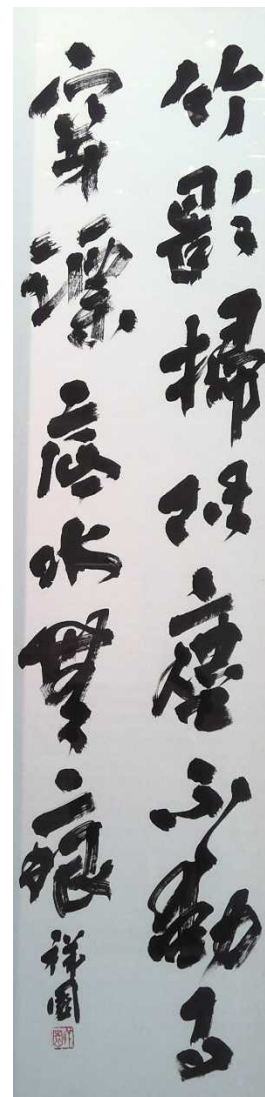 竹影掃階塵不動月
穿潭底水無痕
祥